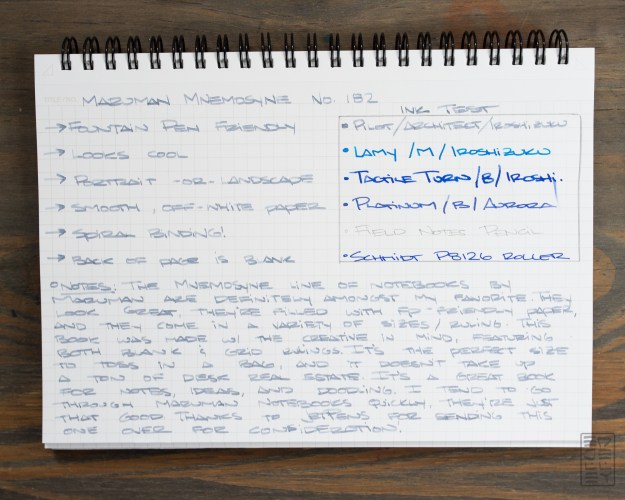 MARUMAN MNEMOSYNE NO. 182
INK TEST
→ FOUNTAIN PEN FRIENDLY
→ LOOKS COOL
→ PORTRAIT -OR- LANDSCAPE
→ SMOOTH, OFF-WHITE PAPER
→ SPIRAL BINDING!
→ BACK OF PAGE IS BLANK
• PILOT/ARCHITECT/IROSHIZUKU
• LAMY /M/ IROSHIZUKU
• TACTILE TURN/B/IROSHI.
• PLATINUM/B/AURORA
• FIELD NOTES PENCIL
• SCHMIDT P8126 ROLLER
NOTES: THE MNEMOSYNE LINE OF NOTEBOOKS BY
MARUMAN ARE DEFINITELY AMONGST MY FAVORITE. THEY
LOOK GREAT. THEY'RE FILLED WITH FP-FRIENDLY PAPER,
AND THEY COME IN A VARIETY OF SIZES/RULING. THIS
BOOK WAS MADE W/ THE CREATIVE IN MIND, FEATURING
BOTH BLANK & GRID RULINGS. IT'S THE PERFECT SIZE
TO TOSS IN A BAG, AND IT DOESN'T TAKE UP
A TON OF DESK REAL ESTATE. IT'S A GREAT BOOK
FOR NOTES, IDEAS, AND DOODLING. I TEND TO GO
THROUGH MARUMAN NOTEBOOKS QUICKLY, THEY'RE JUST
THAT GOOD. THANKS TO JETPENS FOR SENDING THIS
ONE OVER FOR CONSIDERATION.